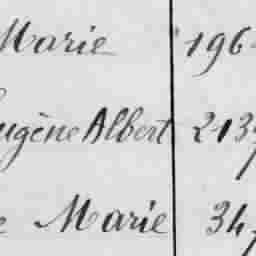 Marie 196
Eugène Albert 213
Marie 34